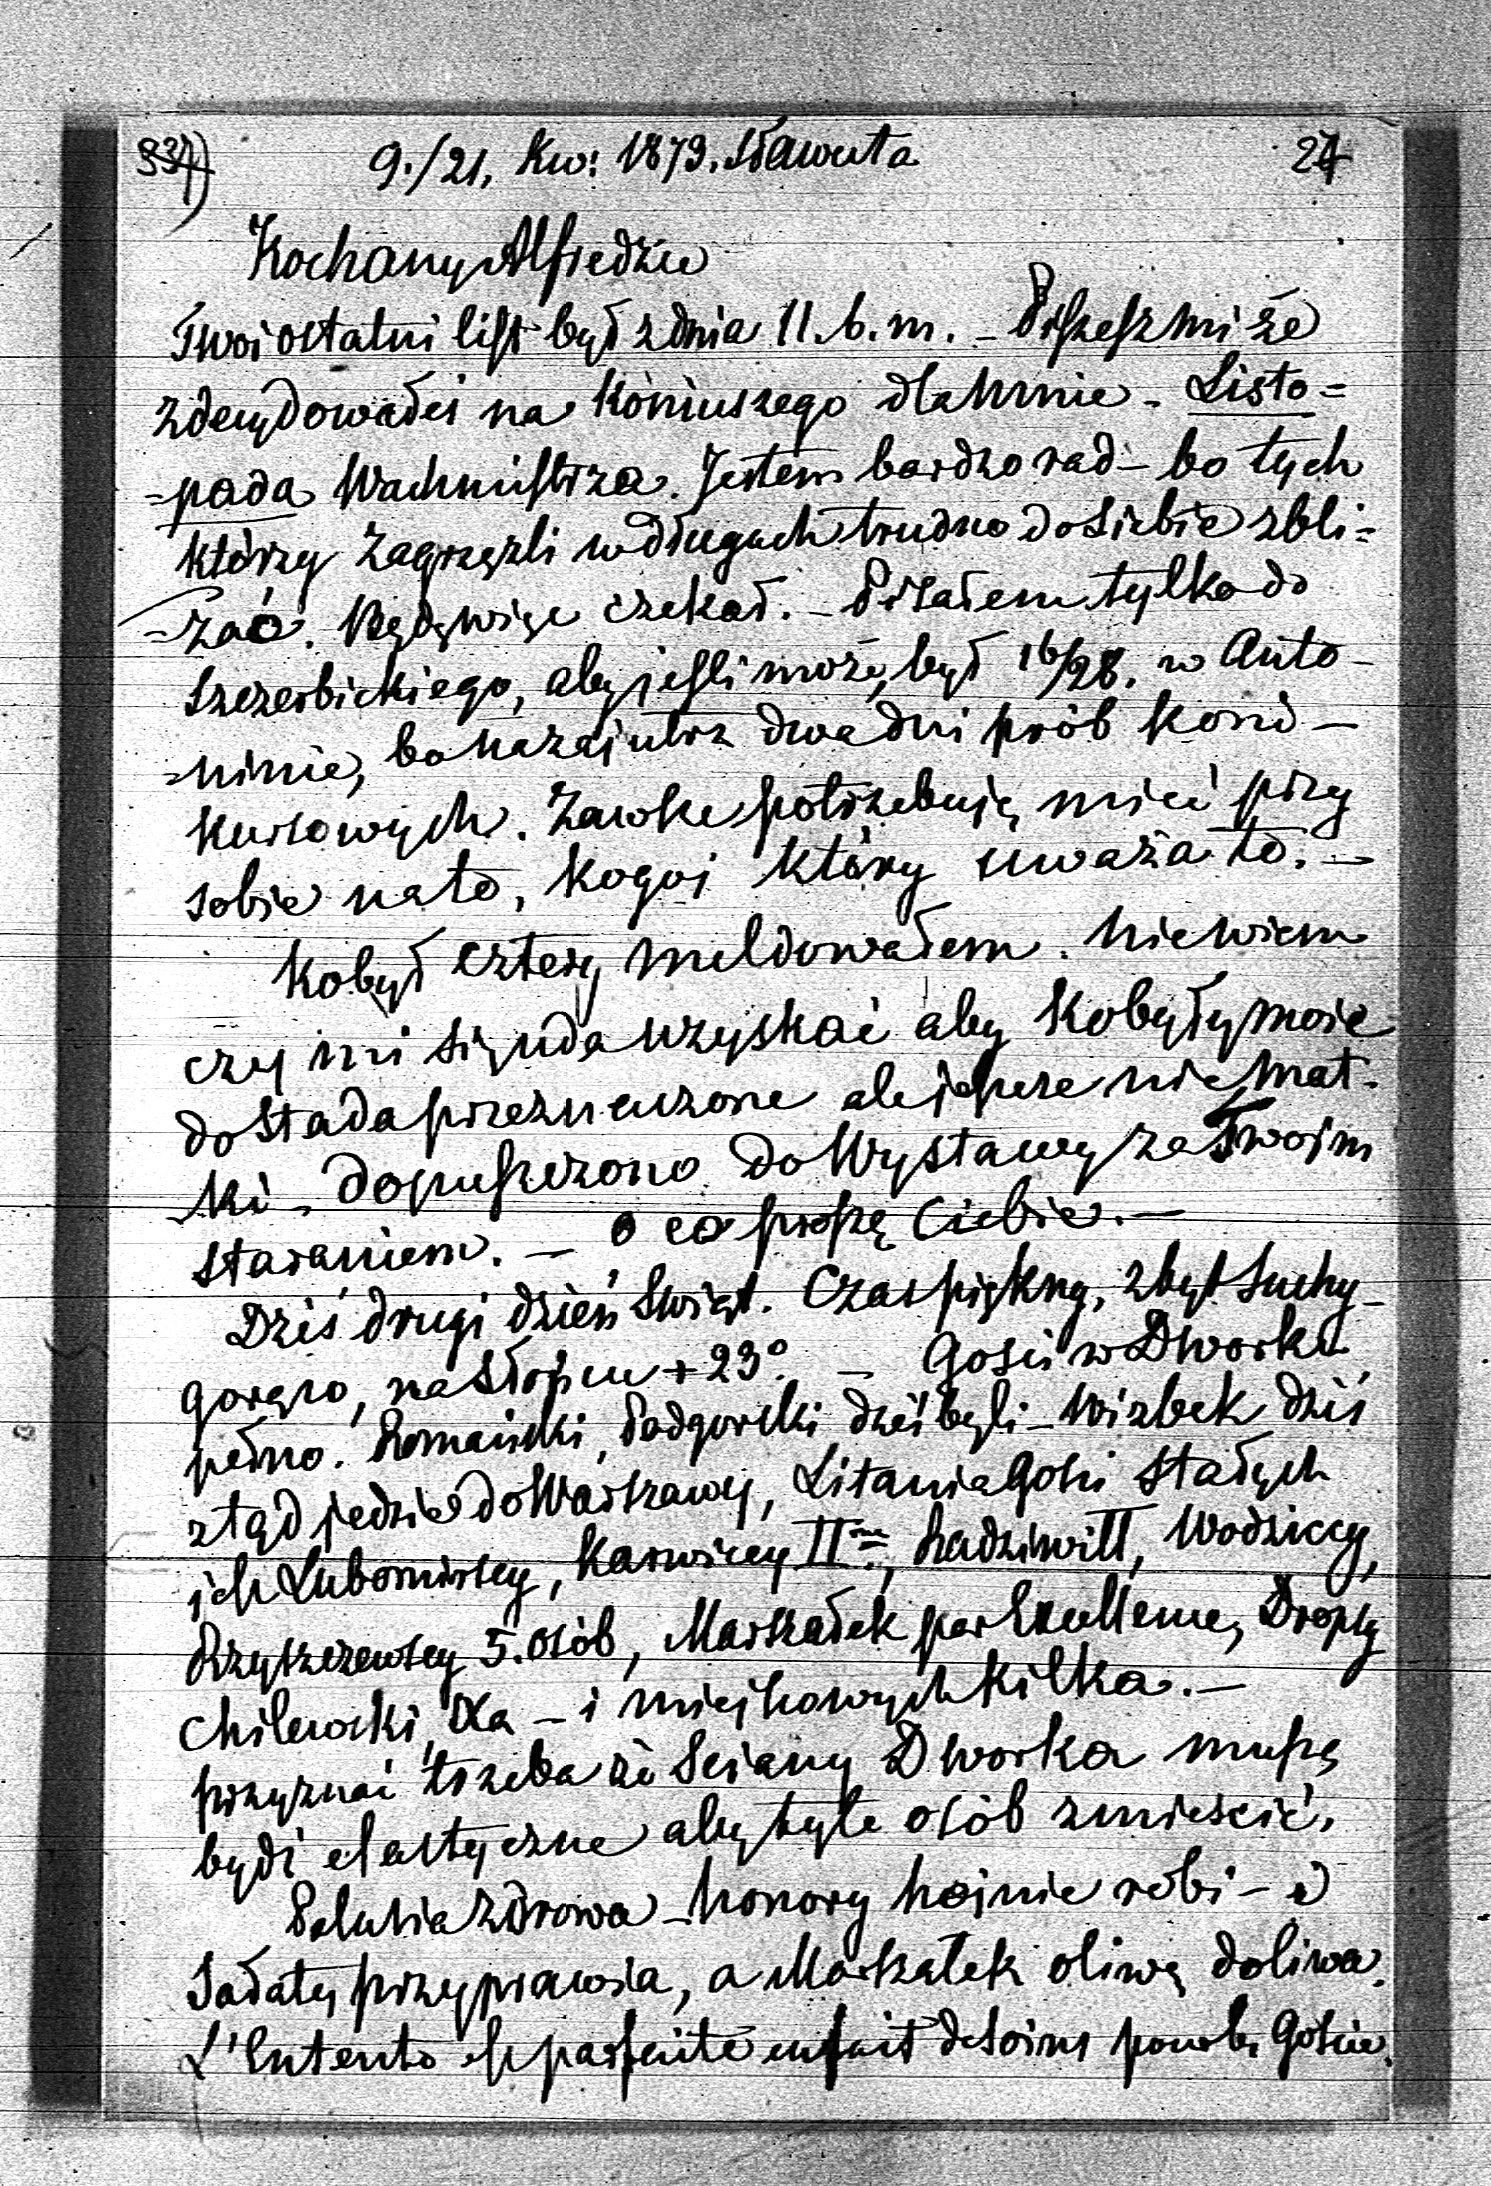 33) 9./21. Kw: 1879. Sławuta 27
Kochany Alfredzie
Twoj ostatni list był z dnia 11. b. m. _ Piszesz mi że
zdecydowałeś na Koniuszego dla mnie - Listo=
=pada Wachmistrza. Jestem bardzo rad - bo tych
którzy zagrzęzli w długach trudno do siebie zbli=
=żać. Będę więc czekał. - Pisałem tylko do
Szczerbickiego, aby jesli może, był 16/28. w Anto-
=ninie, bo nazajutrz dwa dni prób koni -
kursowych. Zawsze potrzebuję mieć przy
sobie na to, kogoś który uważa to. -
Kobył cztery meldowałem. Nie wiem
czy mi się uda uzyskać aby Kobyły moje
do stada przeznaczone ale jeszcze nie mat-
ki - dopuszczono do Wystawy za Twojm
staraniem. - o co proszę Ciebie. -
Dziś drugi dzień Swiąt. Czas piękny, zbyt suchy -
gorąco, na słońcu + 23° - Gosci w Dworku
pełno. Romański, Podgorski dziś byli - Wizbek dziś
ztąd jedzie do Warszawy, Litania Gosci stałych
jch Lubomirscy, Karwiccy II, Radziwiłł, Wodziccy,
Rzyszczewscy 5. osób, Marszałek par Exellence, Dropsy
Chilewski, Xa - i miejscowych kilka. -
przyznać trzeba że Sciany Dworka muszą
być elastyczne aby tyle osób zmieścić.
zdrowa - honory hojnie robi - i
Sałatę przyprawia, a Marszałek oliwą doliwa.
L'Entente est parfaite en fait de soins pour les Goscie.